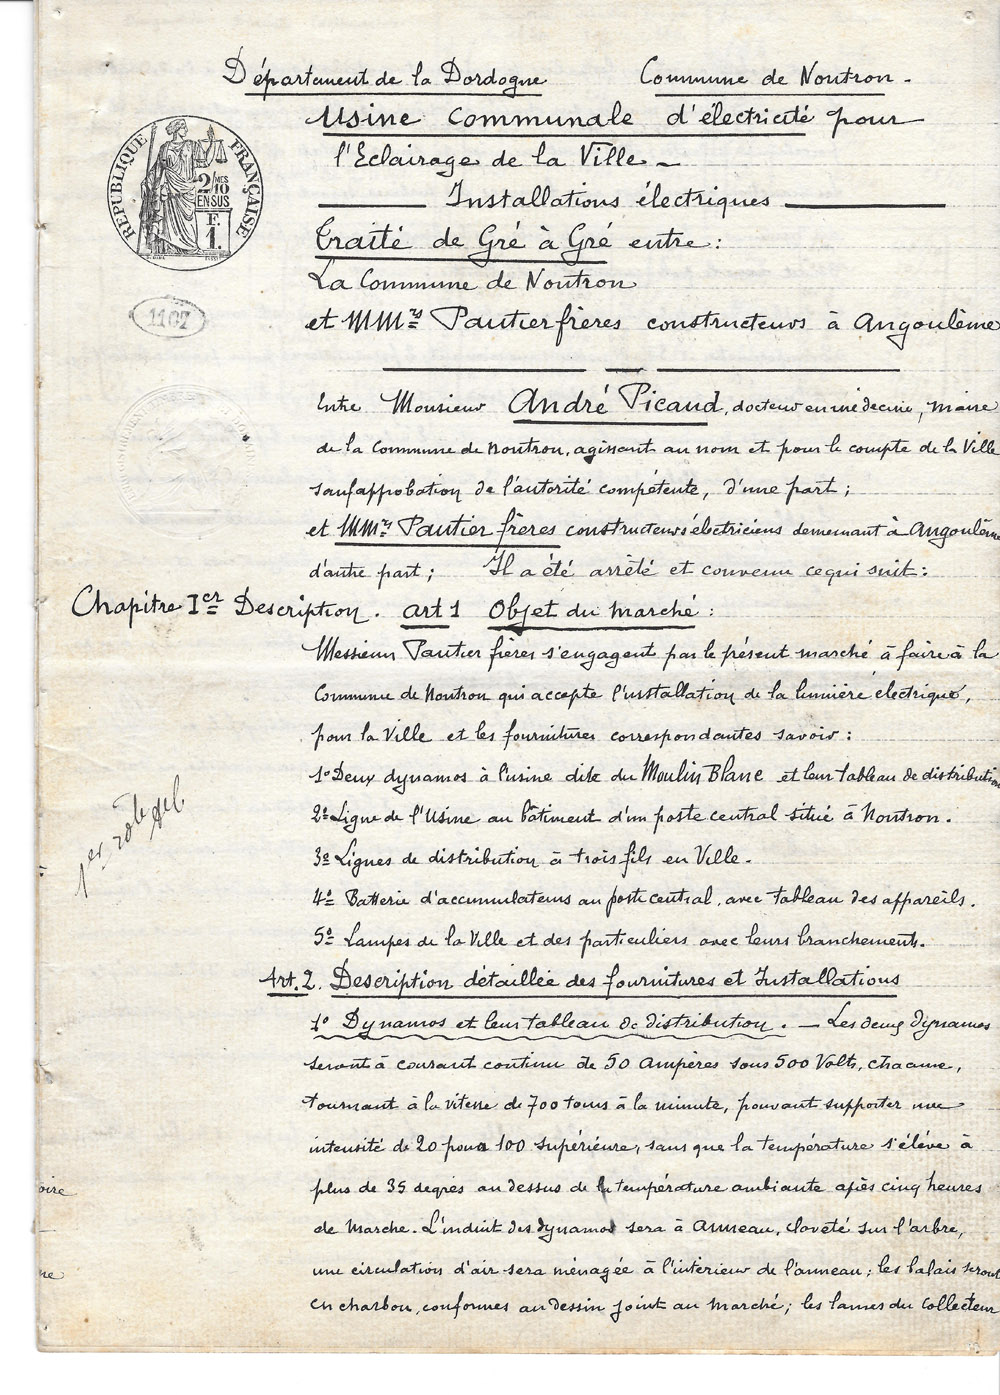 Département de la Dordogne Commune de Nontron -
Usine Communale d'électricité pour
l'Eclairage de la Ville -
Installations électriques
REPUBLIQUE FRANÇAISE
2/MES
10
EN SUS
F.
1.
Traité de Gré à Gré entre :
La Commune de Nontron
1107
et MMrs Pautier frères constructeurs à Angoulême
Entre Monsieur André Picaud, docteur en médecine, maire
de la Commune de Nontron, agissant au nom et pour le compte de la Ville
sauf approbation de l'autorité compétente, d'une part ;
et MMrs Pautier frères constructeurs électriciens demeurant à Angoulême
d'autre part ; Il a été arrêté et convenu ce qui suit :
Chapitre Ier Description. art 1 Objet du marché :
Messieurs Pautier frères s'engagent par le présent marché à faire à la
Commune de Nontron qui accepte l'installation de la lumière électrique,
pour la Ville et les fournitures correspondantes savoir :
1º Deux dynamos à l'usine dite du Moulin Blanc et leur tableau de distribution
2º Ligne de l'Usine au bâtiment d'un poste central situé à Nontron.
1er
3º Lignes de distribution à trois fils en Ville.
4º Batterie d'accumulateurs au poste central, avec tableau des appareils.
5º Lampes de la Ville et des particuliers avec leurs branchements.
Art. 2. Description détaillée des fournitures et Installations
1º Dynamos et leur tableau de distribution. - Les deux dynamos
seront à courant continu de 50 Ampères sous 500 Volts, chacune,
tournant à la vitesse de 700 tours à la minute, pouvant supporter une
intensité de 20 pour 100 supérieure, sans que la température s'élève à
oire
plus de 35 degrés au dessus de la température ambiante après cinq heures
de marche. L'induit des dynamos sera à anneau, claveté sur l'arbre,
ne
une circulation d'air sera ménagée à l'intérieur de l'anneau ; les balais seront
en charbon, conformes au dessin joint au marché ; les lames du collecteur